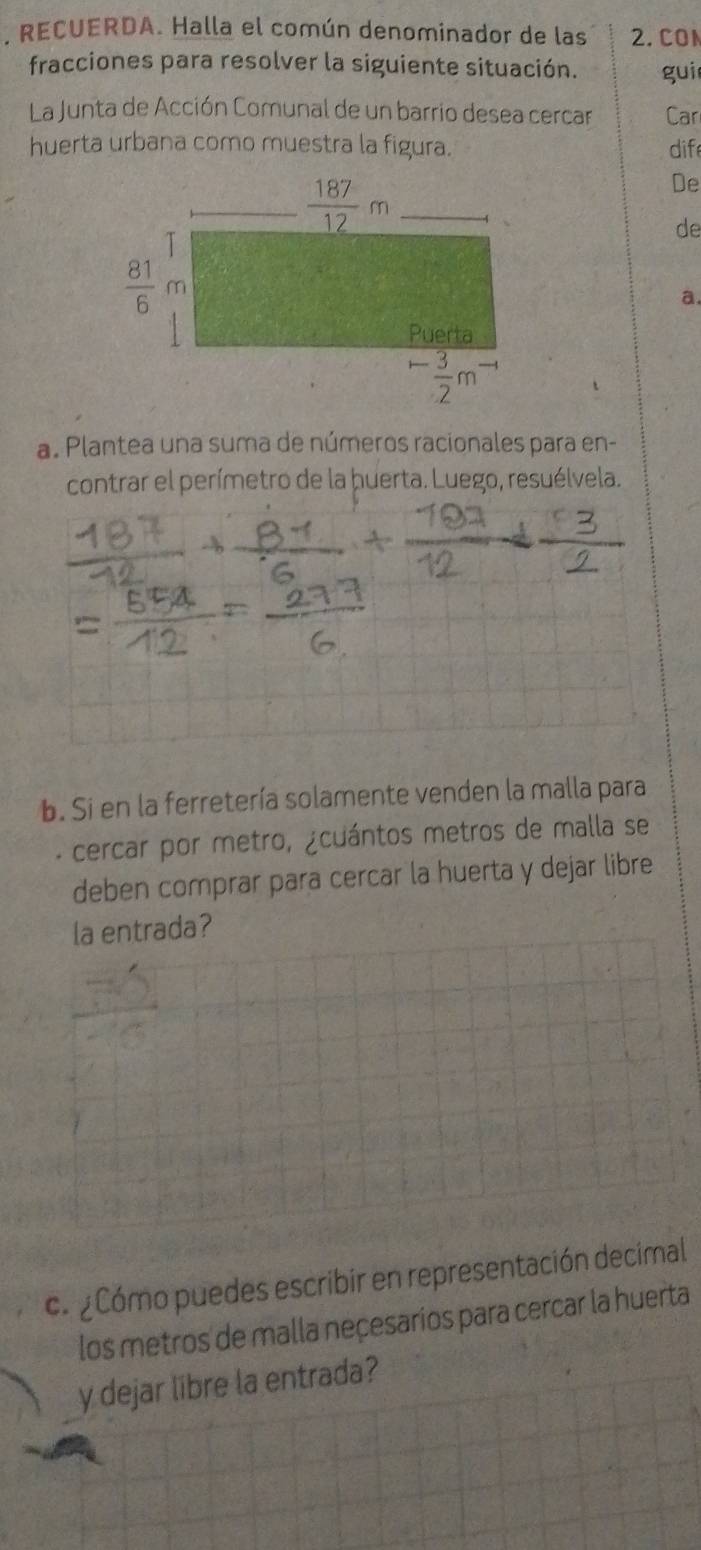 . RECUERDA. Halla el común denominador de las
fracciones para resolver la siguiente situación.
La Junta de Acción Comunal de un barrio desea cercar
huerta urbana como muestra la figura.
187/12 m
81/6 m
Puerta
3/2 m
a. Plantea una suma de números racionales para en-
contrar el perímetro de la huerta. Luego, resuélvela.
187/12 + 81/6 + 187/12 + 3/2
= 554/12 = 277/6
b. Si en la ferretería solamente venden la malla para
cercar por metro, ¿cuántos metros de malla se
deben comprar para cercar la huerta y dejar libre
la entrada?
c. ¿Cómo puedes escribir en representación decimal
los metros de malla necesarios para cercar la huerta
y dejar libre la entrada?
2. CON
gui
Car
dife
De
de
a.